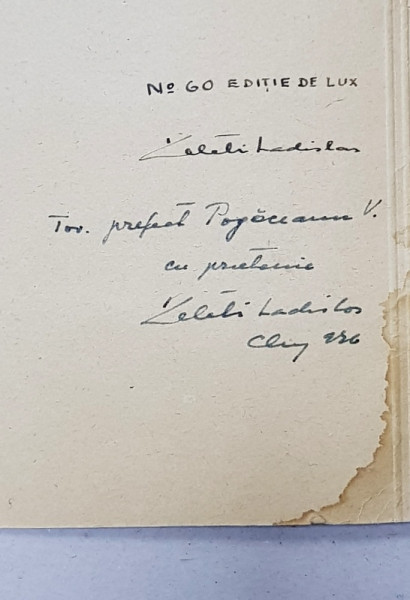 Nº 60 EDIȚIE DE LUX
Ladislas
Tov. prefect Pogăceanu V.
cu prietenie
Ladislas
Cluj